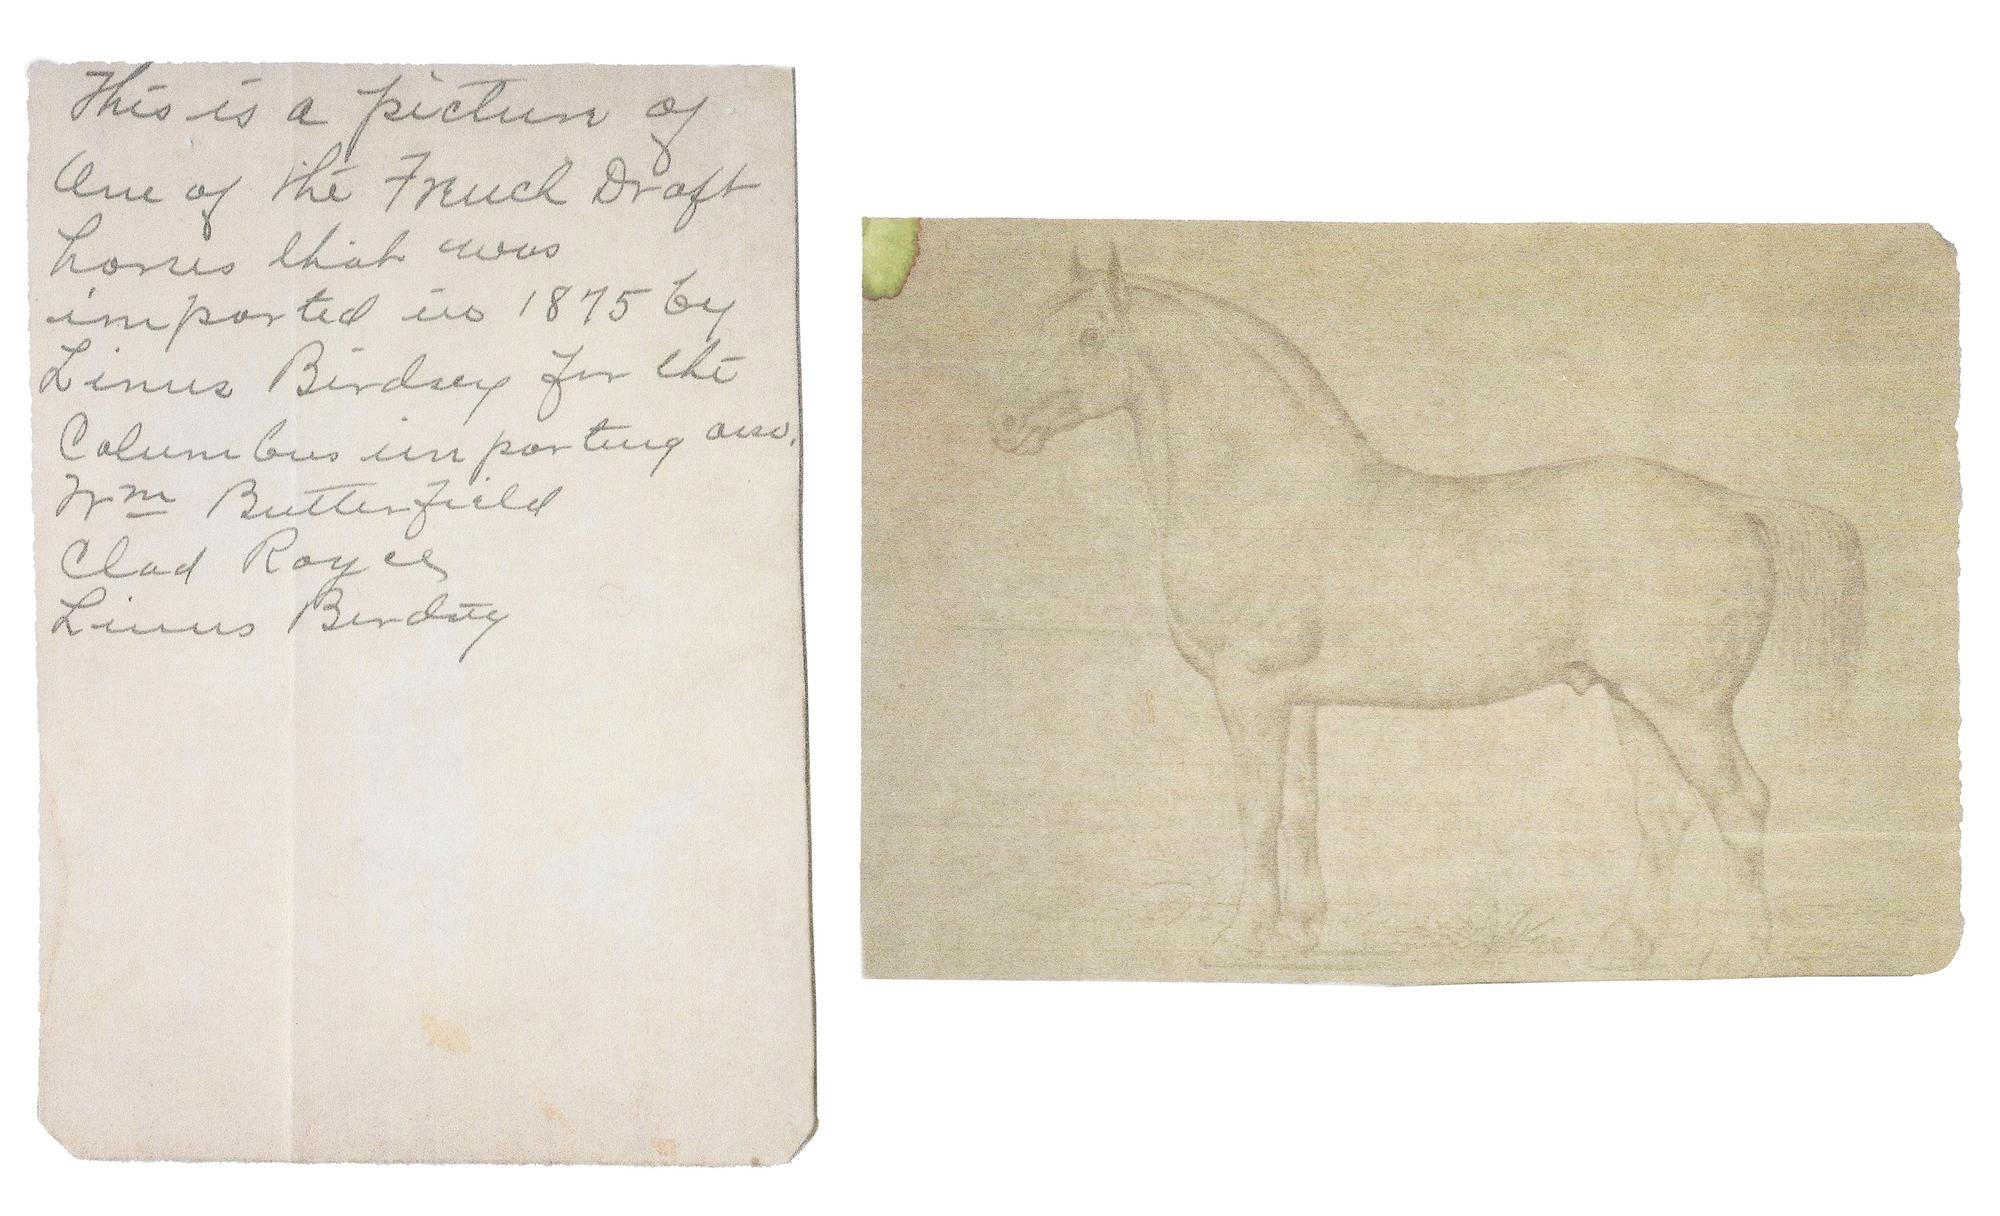 This is a picture of
One of the French Draft
horses that was
imported in 1875 by
Linus Birdsey for the
Columbus importing
Wm Butterfield
Clad Royce
Linus Birdsey